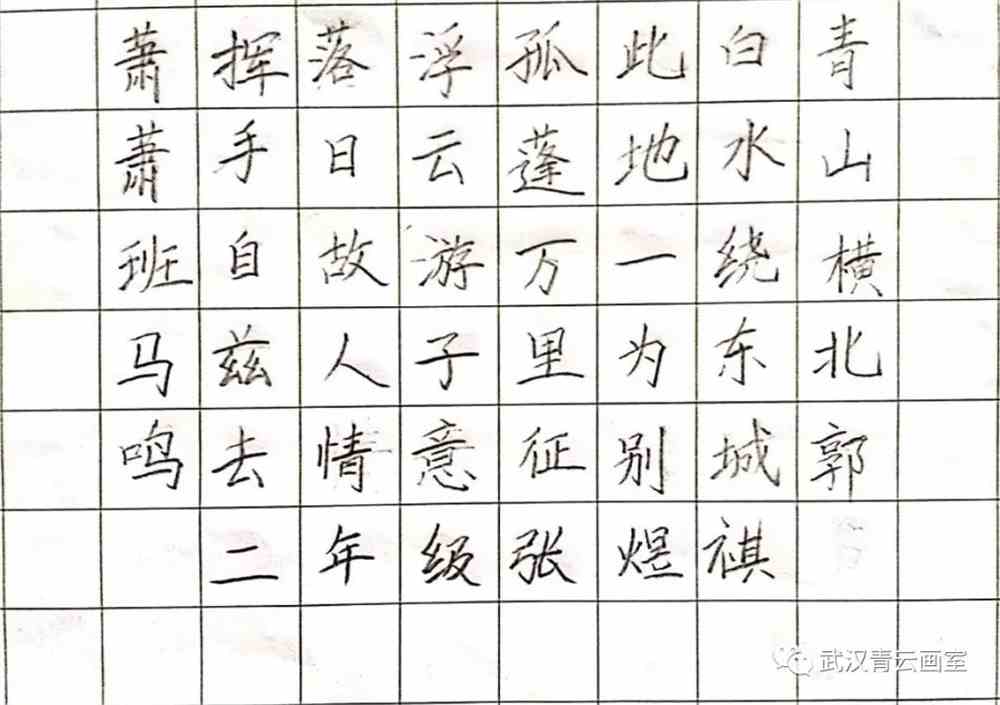 青山横北郭
白水绕东城
此地一为别
孤蓬万里征
浮云游子意
落日故人情
挥手自兹去
萧萧班马鸣
二年级张煜祺
武汉青云画室